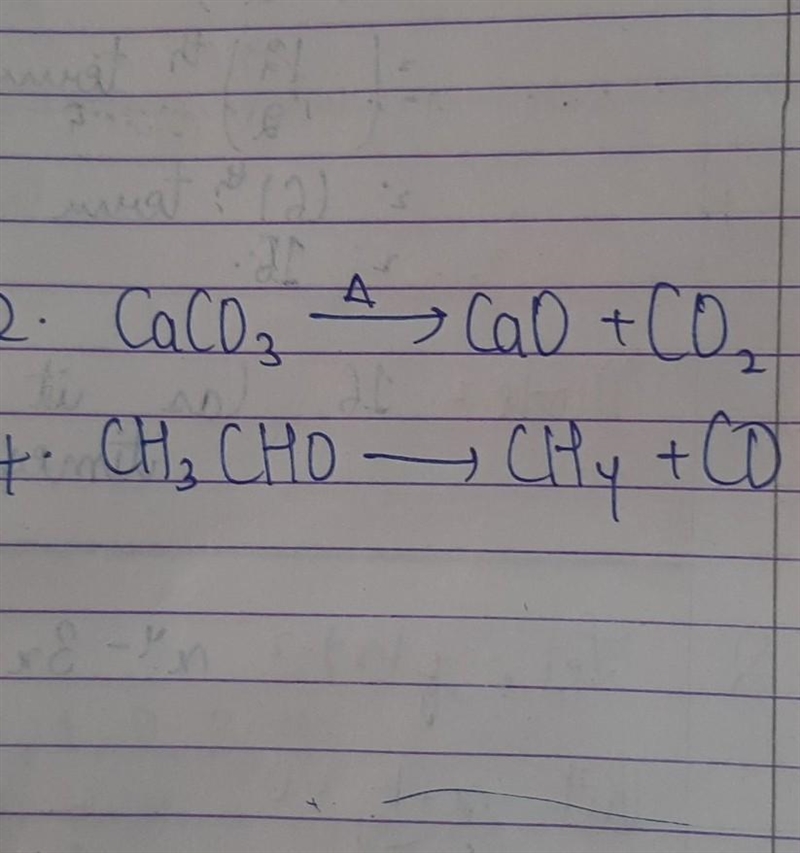 2. CaCO₃ —Δ→ CaO + CO₂
CH₃CHO → CH₄ + CO